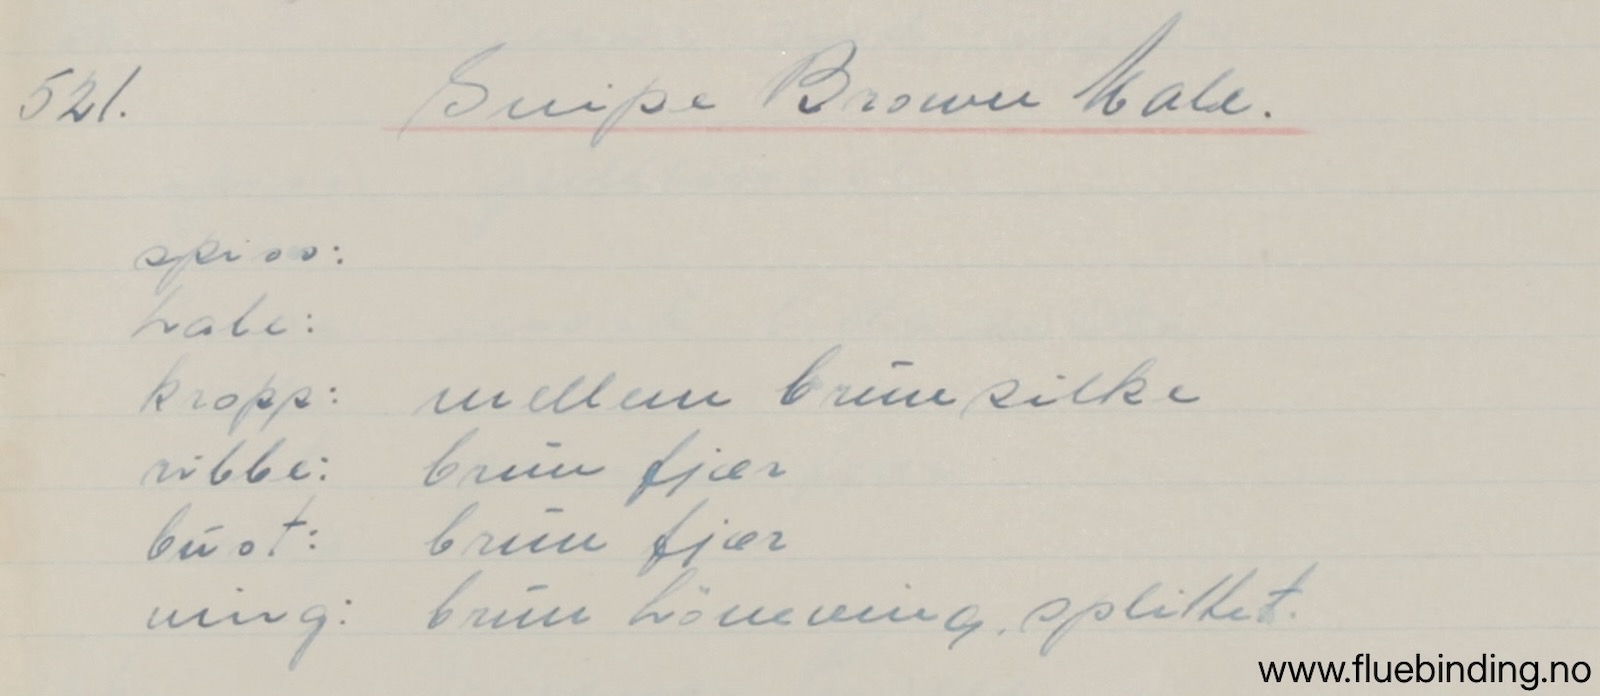 521. Snipe Brown Male.
spiss:
hale:
kropp: mellem brun silke
ribbe: brun fjær
bust: brun fjær
ving: brun höneving, splittet.
www.fluebinding.no